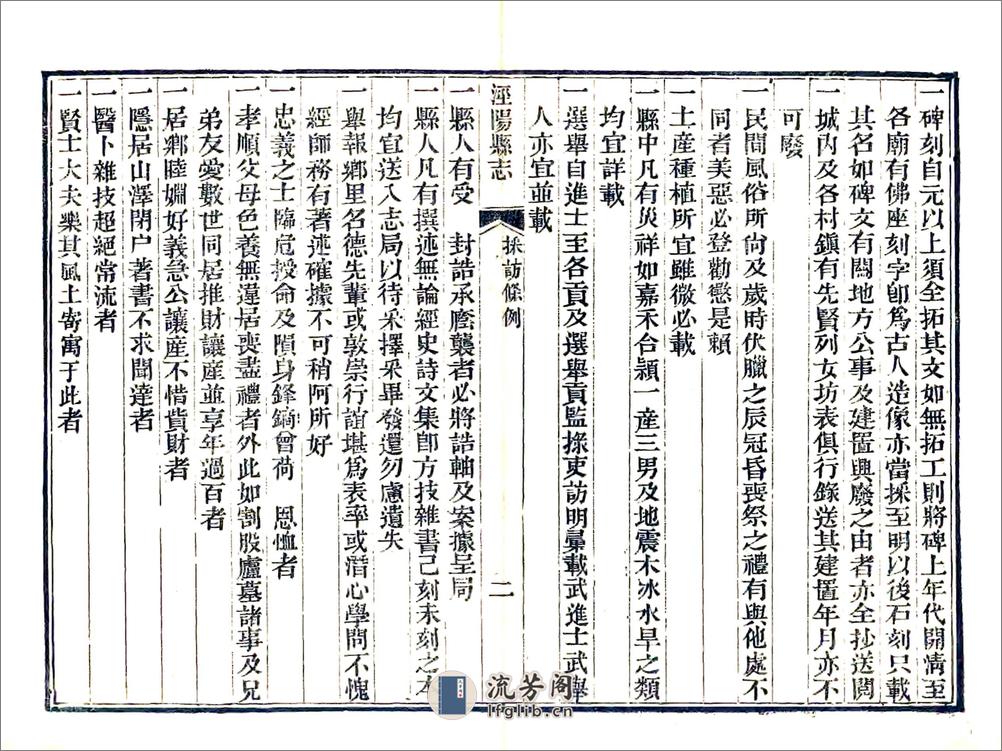 一碑刻自元以上須全拓其文如無拓工則將碑上年代開淸至
各廟有佛座刻字卽爲古人造像亦當採至明以後石刻只載
其名如碑文有關地方公事及建置興廢之由者亦全抄送閱
一城內及各村鎭有先賢列女坊表俱行錄送其建置年月亦不
可廢
一民間風俗所尙及歲時伏臘之辰冠昏喪祭之禮有與他處不
同者美惡必登勸懲是賴
一土產種植所宜雖微必載
一縣中凡有災祥如嘉禾合穎一產三男及地震木冰水旱之類
均宜詳載
一選舉自進士至各貢及選舉貢監掾吏訪明彙載武進士武舉
人亦宜並載
涇陽縣志 採訪條例 二
一縣人有受 封誥承廕襲者必將誥軸及案據呈局
一縣人凡有撰述無論經史詩文集卽方技雜書已刻未刻之本
均宜送入志局以待采擇采畢發還勿慮遺失
一舉報鄕里名德先輩或敦崇行誼堪爲表率或潛心學問不愧
經師務有著述確據不可稍阿所好
一忠義之士臨危授命及隕身鋒鏑曾荷 恩恤者
一孝順父母色養無違居喪盡禮者外此如割股廬墓諸事及兄
弟友愛數世同居推財讓產並享年過百者
一居鄕睦婣好義急公讓產不惜貲財者
一隱居山澤閉戶著書不求聞達者
一醫卜雜技超絕常流者
一賢士大夫樂其風土寄寓于此者
流芳阁
lfglib.cn